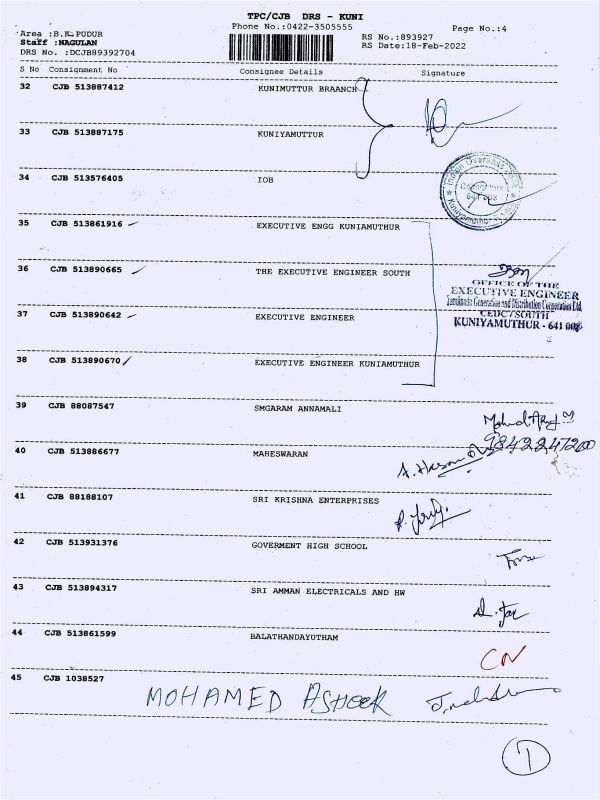 TPC/CJB DRS - KUNI
Phone No.:0422-3505555
Page No.:4
Area :B.K.PUDUR
RS No.:893927
Staff :NAGULAN
RS Date:18-Feb-2022
DRS No. :DCJB89392704
S No Consignment No Consignee Details Signature
32 CJB 513887412 KUNIMUTTUR BRAANCH
33 CJB 513887175 KUNIYAMUTTUR
34 CJB 513576405 IOB
Indian Overseas
35 CJB 513861916 EXECUTIVE ENGG KUNIAMUTHUR
36 CJB 513890665 THE EXECUTIVE ENGINEER SOUTH
OFFICE OF THE
EXECUTIVE ENGINEER
Tamilnadu Generation and Distribution Corporation Ltd.
CEDC/SOUTH
KUNIYAMUTHUR - 641 008
37 CJB 513890642 EXECUTIVE ENGINEER
38 CJB 513890670 EXECUTIVE ENGINEER KUNIAMUTHUR
39 CJB 88087547 SMGARAM ANNAMALI
40 CJB 513886677 MAHESWARAN
41 CJB 88188107 SRI KRISHNA ENTERPRISES
42 CJB 513931376 GOVERMENT HIGH SCHOOL
43 CJB 513894317 SRI AMMAN ELECTRICALS AND HW
44 CJB 513861599 BALATHANDAYUTHAM
CN
45 CJB 1038527
MOHAMED ASHEEK
1